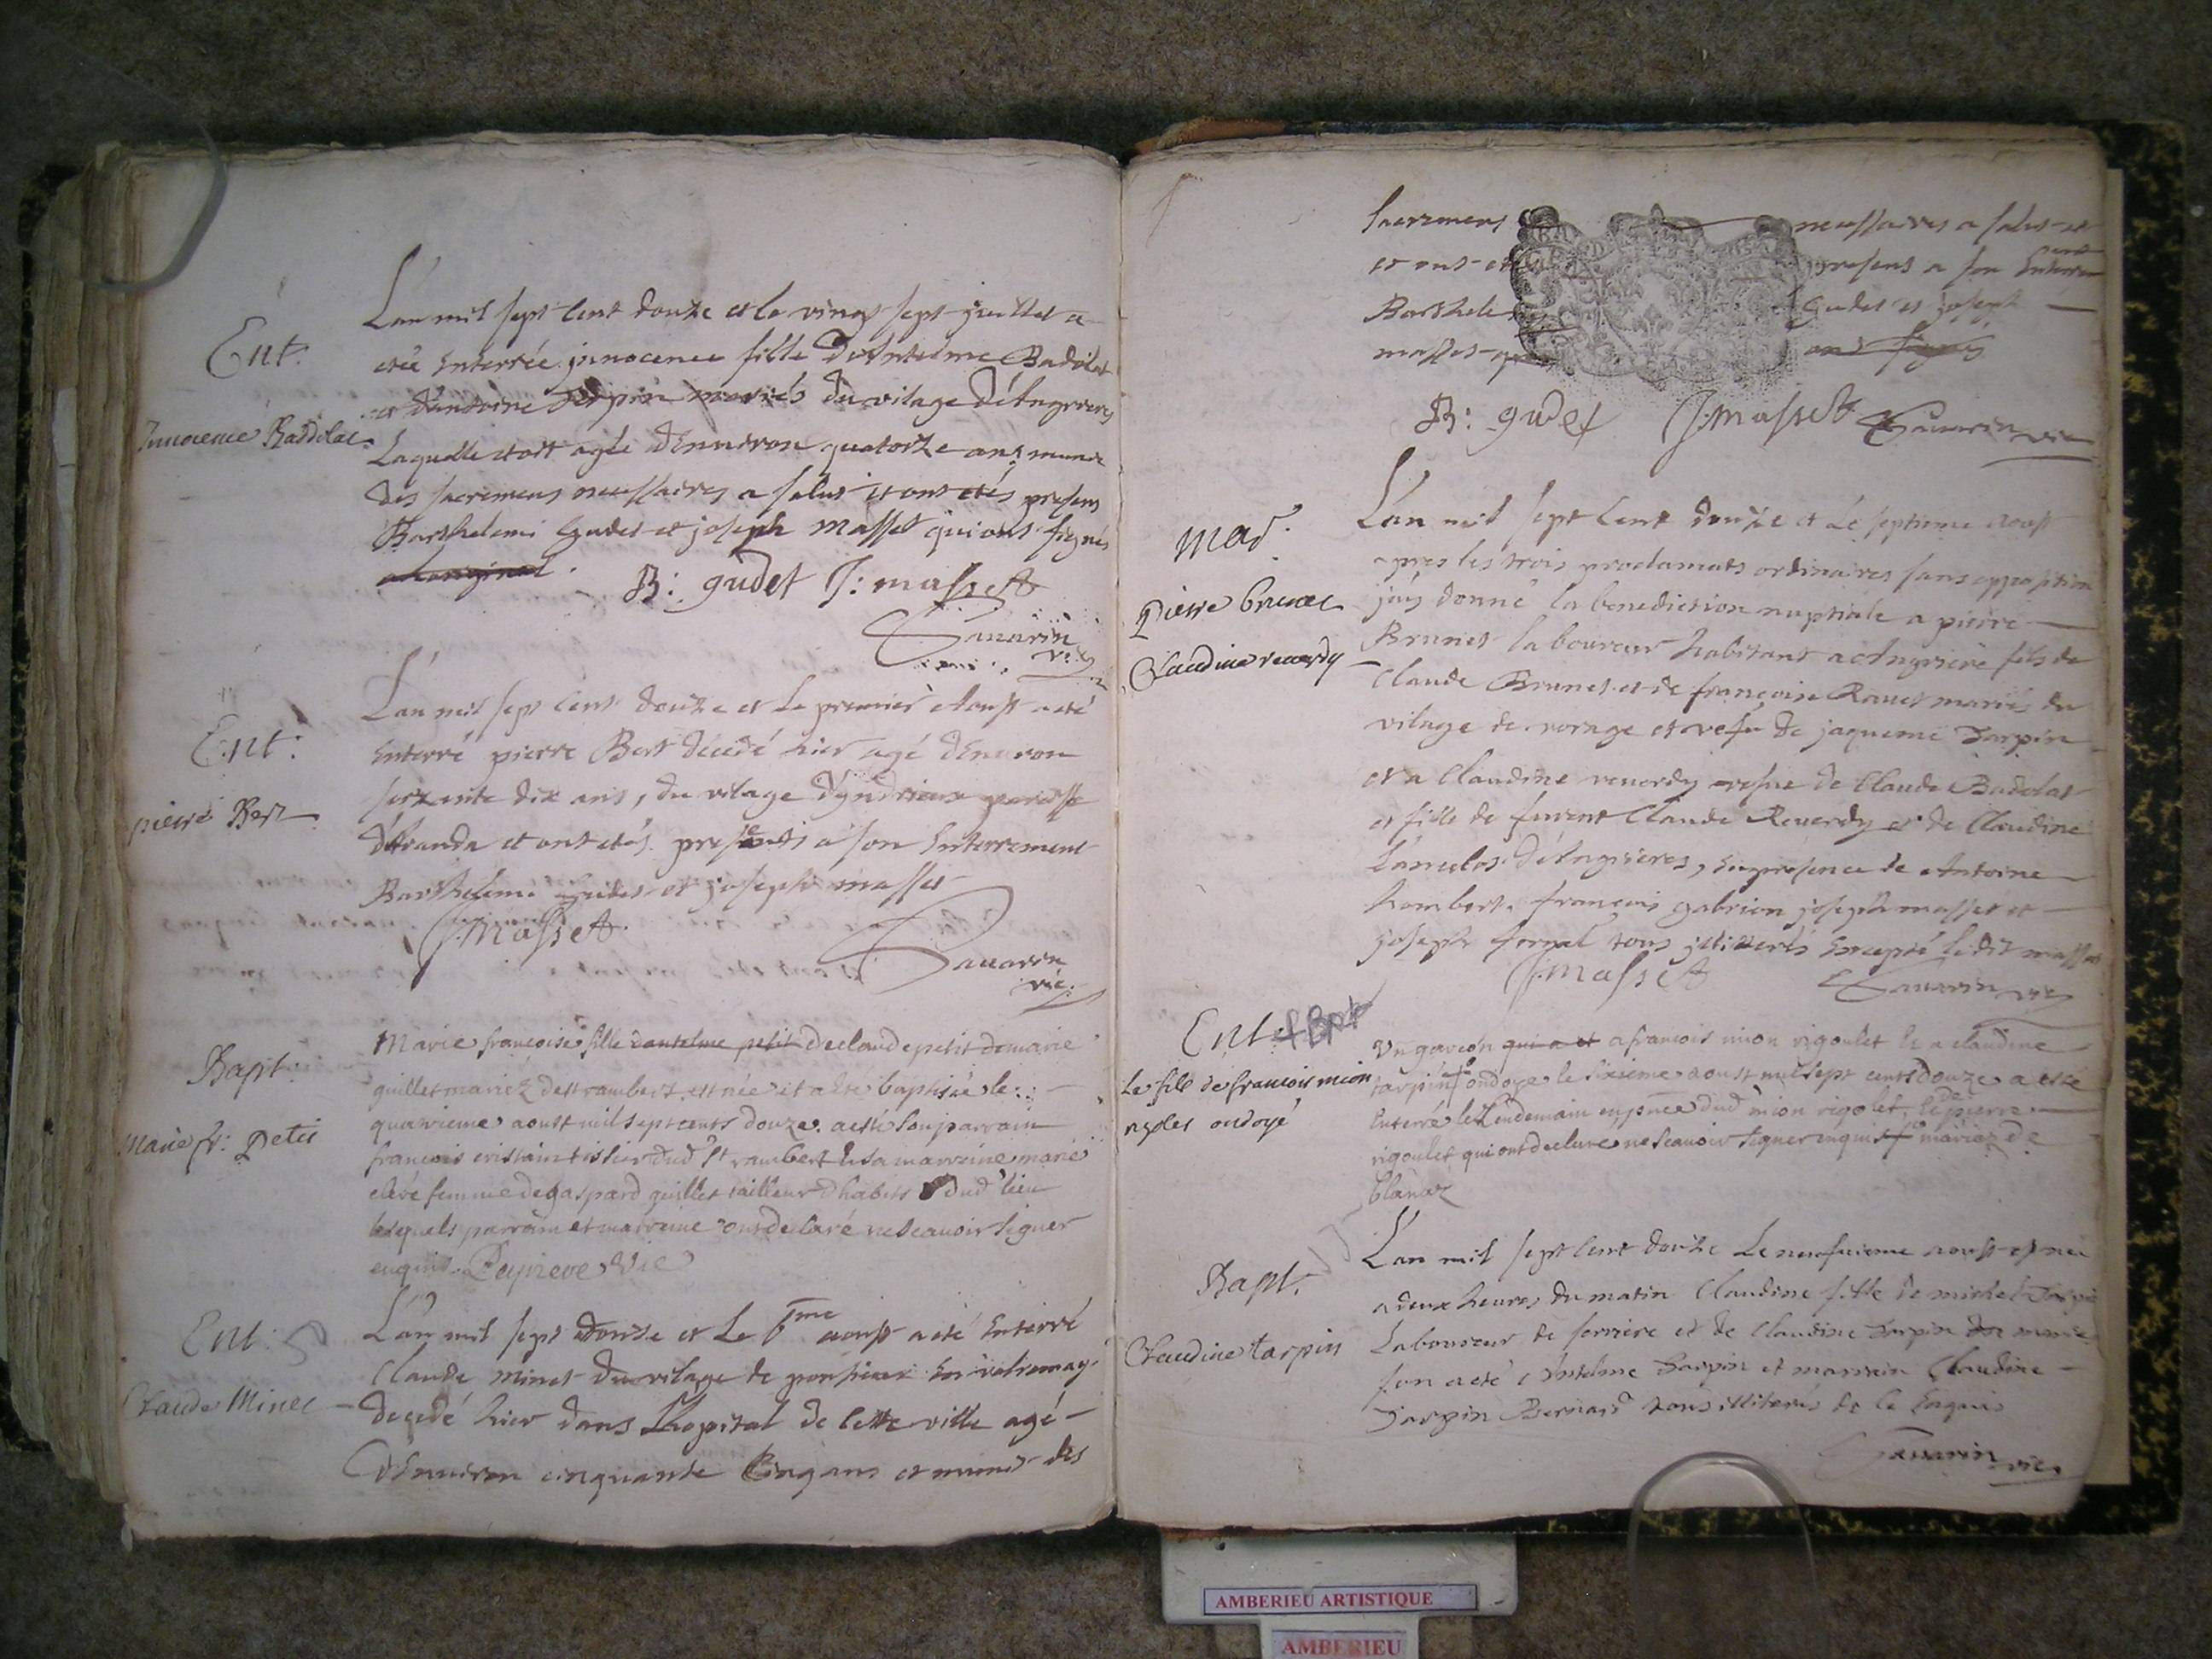 Ent.
Innocence Baddolat
L'an mil sept cent douze et le vingt sept juillet a
etée Enterrée innocence fille D'Antelme Badolat
et d'antoine Tarpin mariés du vilage d'etAngrieres
Laquelle etoit agée D'Environ quatorze ans munie
des sacremens necessaires a salut et ont etés presens
Barthelemi Gudet et joseph masset qui ont signés
B: gudet J: masset
Sauarin
vic
Ent:
pierre Bert
L'an mil sept cent douze et Le premier Aoust a eté
Enterré pierre Bert decedé hier agé d'Environ
soixante dix ans, du vilage d'yndrieux paroisse
et ont etés presents a son Enterrement
Barthelemi Gudet et joseph masset
J:masset
Sauarin
vic.
Bapt.
Marie fr: Petit
Marie francoise fille dantelme petit de claude petit de marie
guillet mariez de st rambert est née et a eté baptisée le
quatrieme aoust mil sept cents douze. a esté son parrain
francois tissier dud st rambert & sa marreine marie
femme de gaspard guillet tailleur dhabits dud lieu
lesquels parrain et marreine ont declaré ne scauoir signer
enquis. vic
Ent:
Claude Minet
L'an mil sept douze et Le 6me aoust a eté Enterré
Claude minet du vilage de ponsieux en valromay
decedé hier dans Lhopital de cette ville agé
d'Environ cinquante Cinq ans et muni des
sacremens necessaires a salut et
et ont et presens a son Enterrement
Barthele Gudet et joseph
masset qui ont signés
B: gudet J:masset Sauarin vic
Mar.
Pierre brunet
Claudine reuerdy
L'an mil sept cent douze et Le septieme aoust
apres les trois proclamats ordinaires sans opposition
j'ay donné la benediction nuptiale a pierre
Brunet laboureur habitant a etAngriere fils de
Claude Brunet et de françoise Rauet mariés du
vilage de vorage et vefu de jaqueme Tarpin
et a Claudine reuerdy vefue de Claude Badolat
et fille de furent Claude Reuerdy et de Claudine
Lancelos d'etAngrieres, en presence de Antoine
humbert. françois gabrion joseph masset et
joseph fornel tous jlliterés Excepté ledit masset
J:masset Sauarin vic
Ent + Bpt
Le fils de francois mion
rigolet ondoyé
Un garcon qui a et a francois mion rigoulet & a claudine
tarpin ondoye le sixieme aoust mil sept cents douze a esté
Enterré le Lendemain en pnce dud mion rigolet, & de pierre
rigoulet qui ont declaré ne scauoir signer enquis mariez de
blanaz
Bapt.
Claudine tarpin
L'an mil sept cent douze Le neufuieme aoust est née
a deux heures du matin Claudine fille de michel Tarpin
Laboureur de seruiere et de Claudine Tarpin
son a eté Antelme Tarpin et marrein Claudine
Tarpin Bernard tous illiterés de ce Enquis
Sauarin vic.
AMBERIEU ARTISTIQUE
AMBERIEU